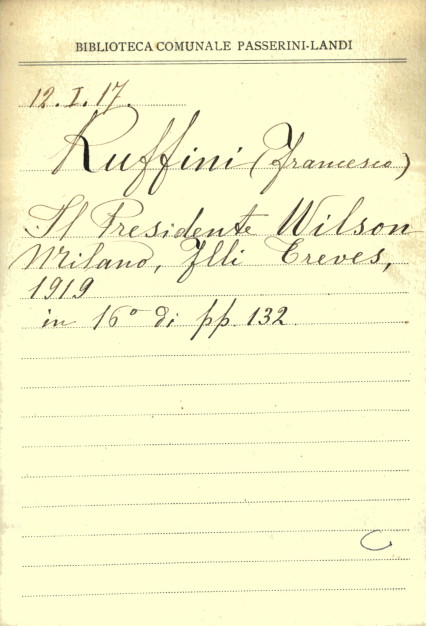 BIBLIOTECA COMUNALE PASSERINI-LANDI
12.I.17.
Ruffini (Francesco)
Il Presidente Wilson
Milano, Flli Treves,
1919
in 16º di pp. 132
C